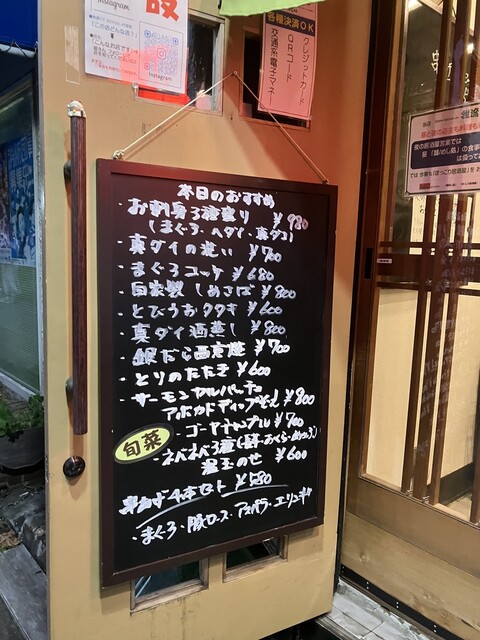 Instagram
Instagram
各種決済OK
クレジットカード
QRコード
交通系電子マネー
本日のおすすめ
・お刺身3種盛り ¥980
(まぐろ・ヘダイ・真ダコ)
・真ダイの洗い ¥700
・まぐろユッケ ¥680
・自家製しめさば ¥800
・とびうおタタキ ¥600
・真ダイ酒蒸し ¥800
・銀だら西京焼 ¥700
・とりのたたき ¥600
・サーモンカルパッチョ
アボカドディップ添え ¥800
旬菜
・ゴーヤチャンプル ¥700
・ネバネバ3種
温玉のせ ¥600
串あげ4本セット ¥580
・まぐろ・豚ロース・アスパラ・エリンギ